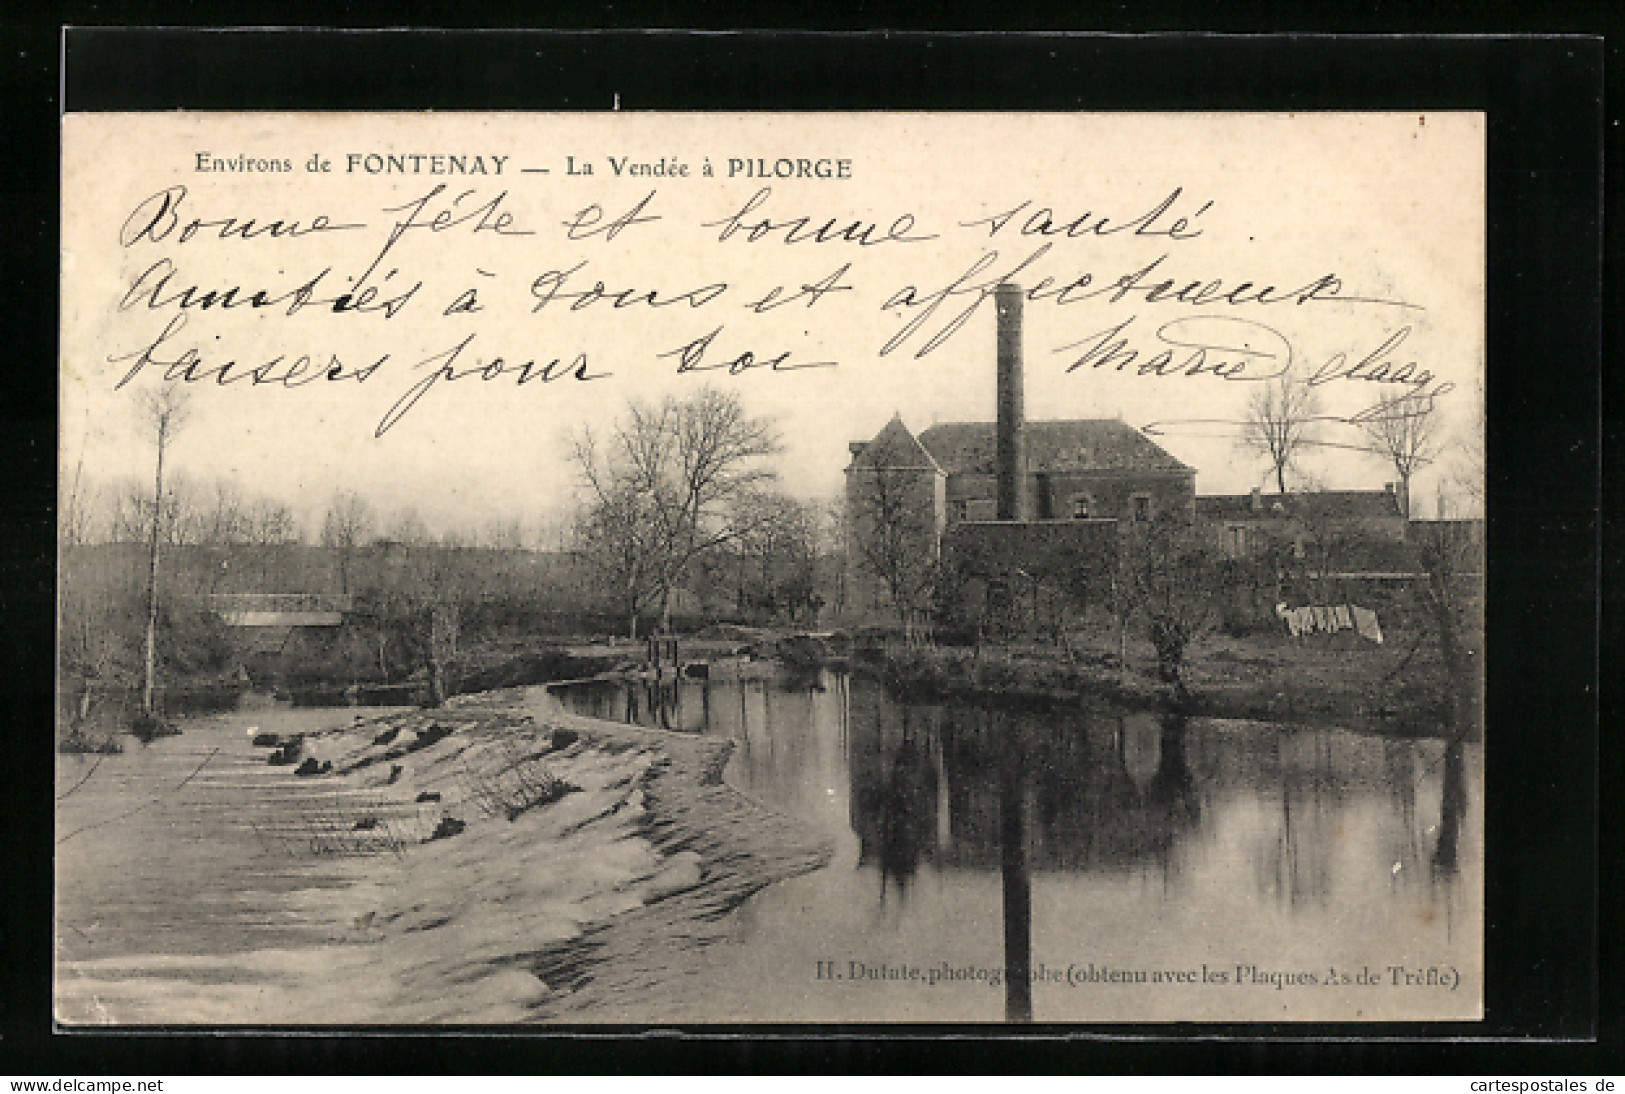 Environs de FONTENAY — La Vendée à PILORGE
Bonne fête et bonne santé.
Amitiés à tous et affectueux
baisers pour toi Marie
H. Dutate, photographe (obtenu avec les Plaques As de Trèfle)
AK Ansichtskarte / Postkarte
cartespostales de